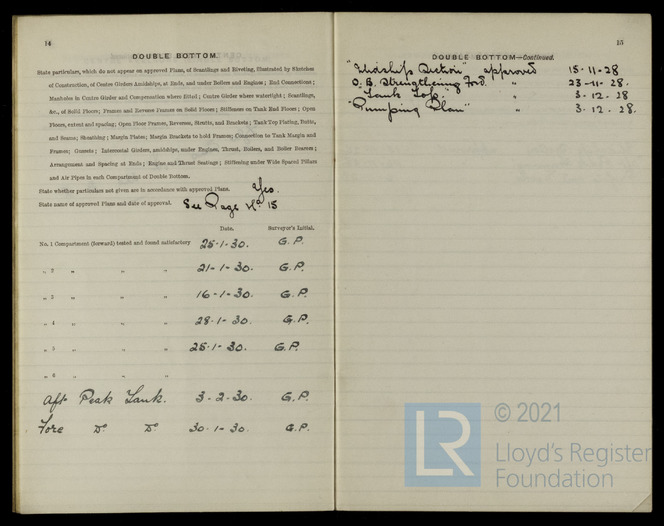 14
DOUBLE BOTTOM.
State particulars, which do not appear on approved Plans, of Scantlings and Riveting, illustrated by Sketches
of Construction, of Centre Girders Amidships, at Ends, and under Boilers and Engines; End Connections;
Manholes in Centre Girder and Compensation where fitted; Centre Girder where watertight; Scantlings,
&c., of Solid Floors; Frames and Reverse Frames on Solid Floors; Stiffeners on Tank End Floors; Open
Floors, extent and spacing; Open Floor Frames, Reverses, Struts, and Brackets; Tank Top Plating, Butts,
and Seams; Sheathing; Margin Plates; Margin Brackets to hold Frames; Connection to Tank Margin and
Frames; Gussets; Intercostal Girders, amidships, under Engines, Thrust, Boilers, and Boiler Bearers;
Arrangement and Spacing at Ends; Engine and Thrust Seatings; Stiffening under Wide Spaced Pillars
and Air Pipes in each Compartment of Double Bottom.
State whether particulars not given are in accordance with approved Plans. Yes.
State name of approved Plans and date of approval. See Page No 15
Date. Surveyor's Initial.
No. 1 Compartment (forward) tested and found satisfactory 25-1-30. G.P.
„ 2 „ „ „ 21-1-30. G.P.
„ 3 „ „ „ 16-1-30. G.P.
„ 4 „ „ „ 28-1-30. G.P.
„ 5 „ „ „ 25-1-30. G.P.
„ 6 „ „ „
Aft Peak Tank. 3-2-30. G.P.
Fore Do Do 30-1-30. G.P.
15
DOUBLE BOTTOM—Continued.
"Midship Section" approved 15-11-28
O.B. Strengthening Ford. " 23-11-28.
Tank Top. " 3-12-28
"Pumping Plan" " 3-12-28.
LR
© 2021
Lloyd's Register
Foundation